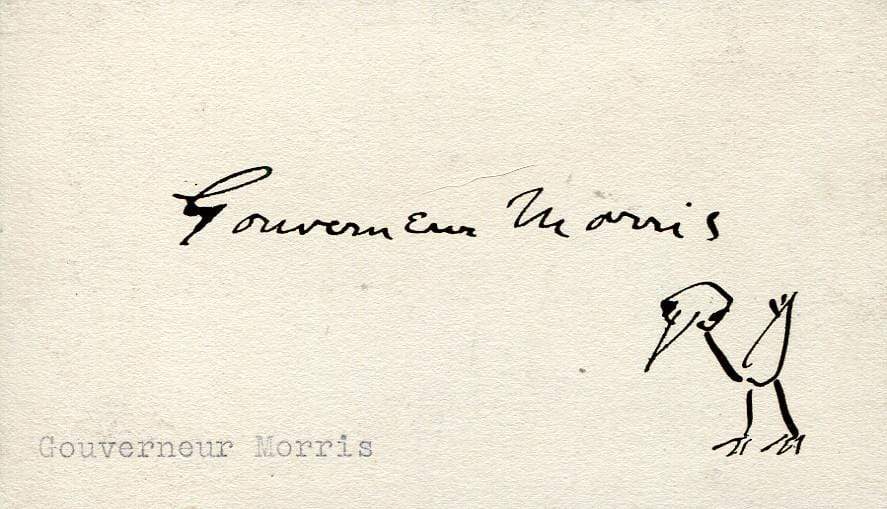 Gouverneur Morris
Gouverneur Morris